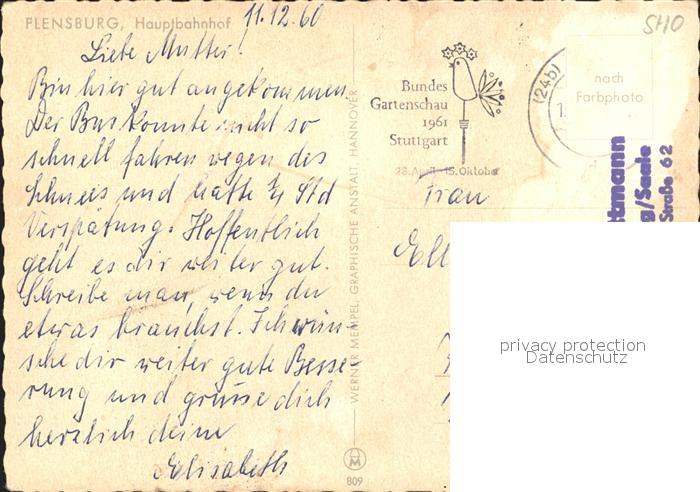 FLENSBURG, Hauptbahnhof
11.12.60
Liebe Mutter!
Bin hier gut angekommen.
Der Bus konnte nicht so
schnell fahren wegen des
Schnees und hatte ¾ Std
Verspätung. Hoffentlich
geht es dir weiter gut.
Schreibe man, wenn du
etwas brauchst. Ich wün-
sche dir weiter gute Besse-
rung und grüsse dich
herzlich deine
Elisabeth
WERNER MEMPEL, GRAPHISCHE ANSTALT, HANNOVER
M
809
Bundes
Gartenschau
1961
Stuttgart
28. April - 15. Oktober
(24b)
nach
Farbphoto
5HO
Frau
tmann
g/Saale
Straße 62
privacy protection
Datenschutz